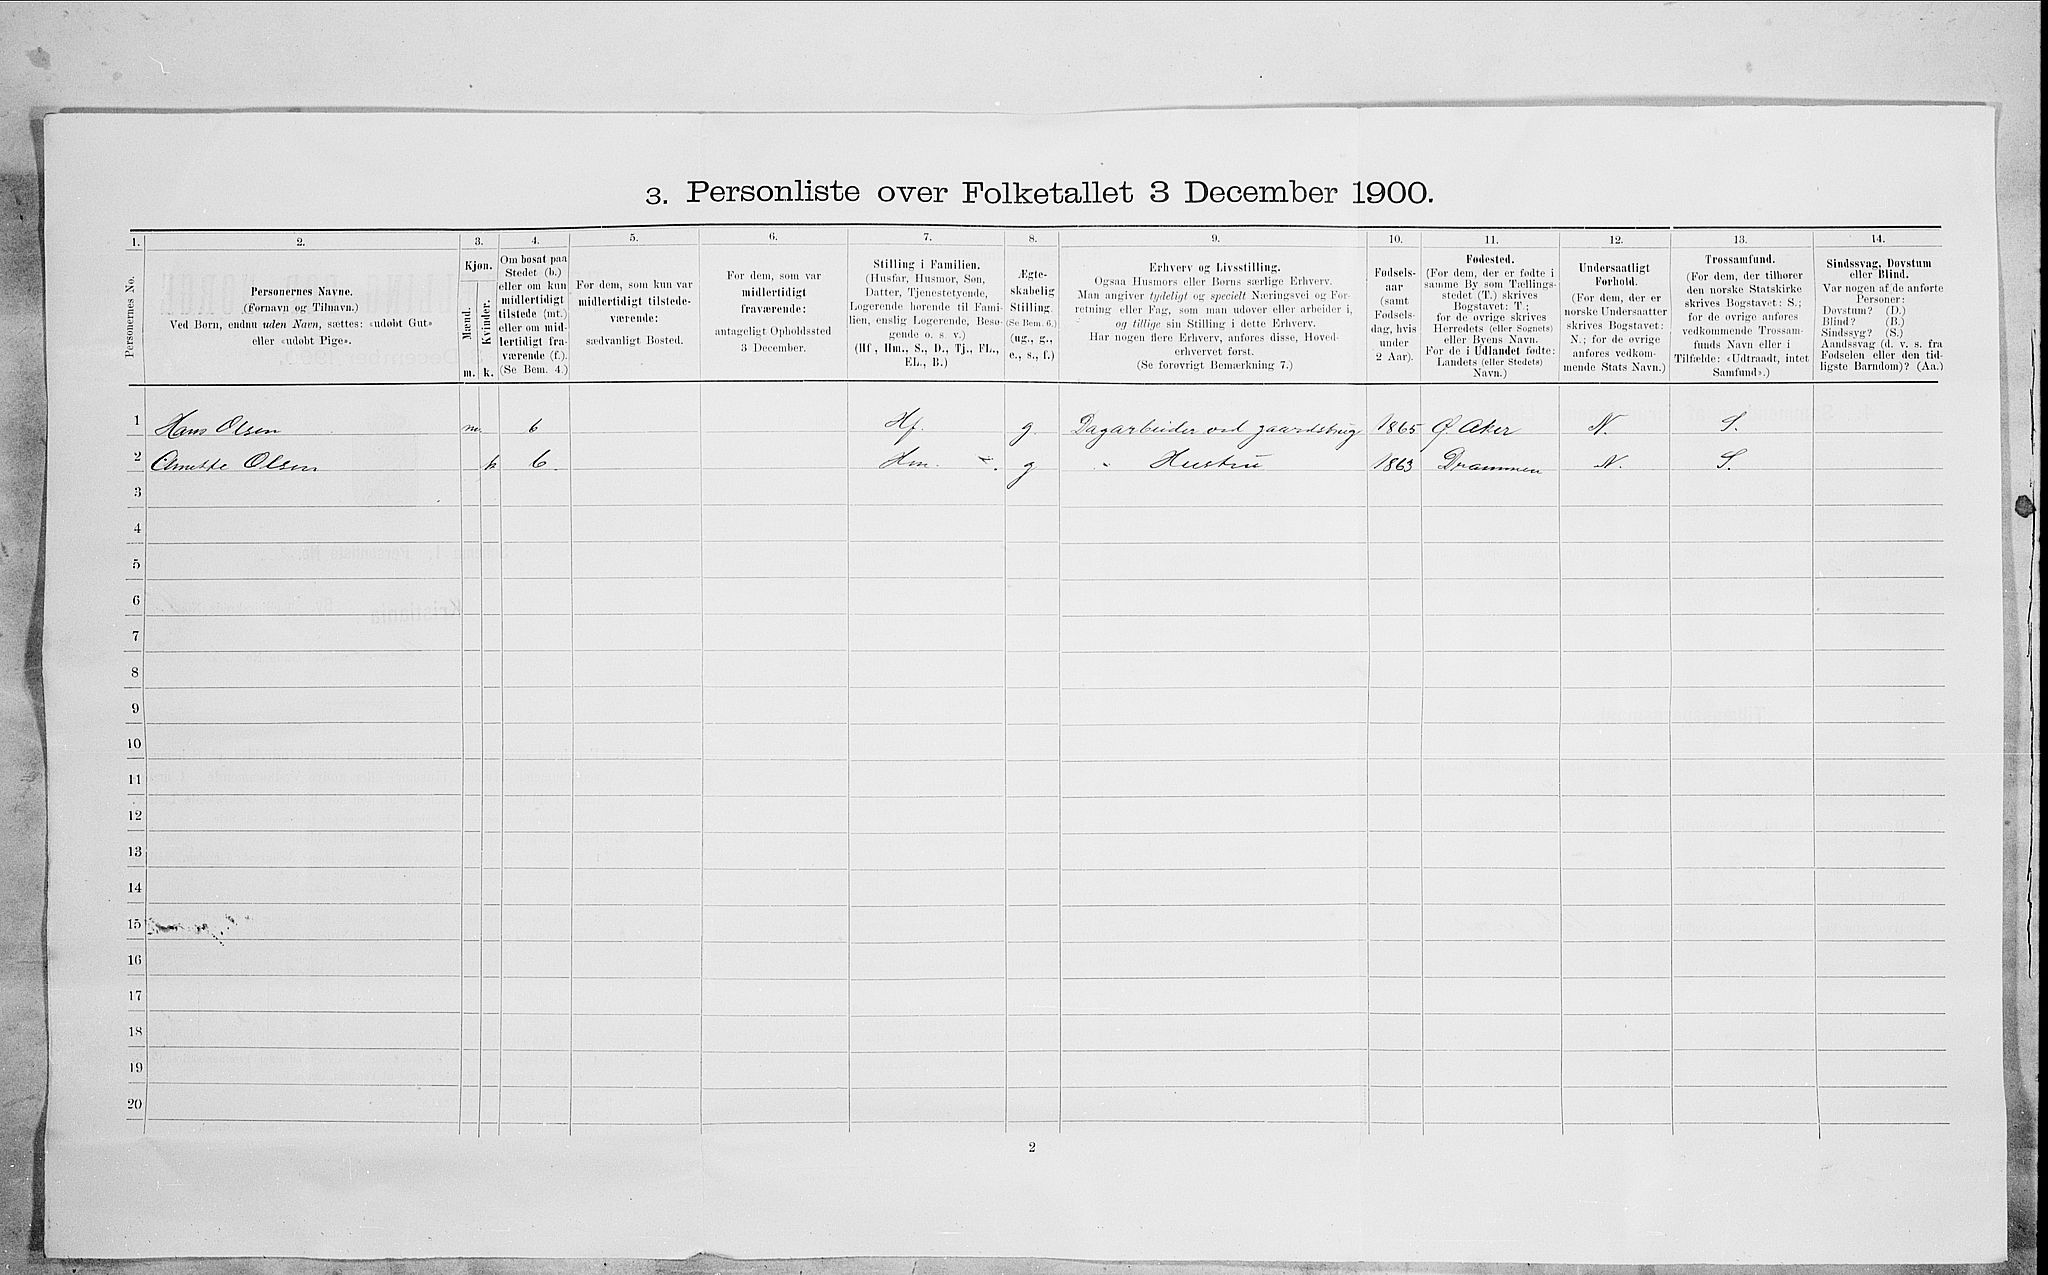 3. Personliste over Folketallet 3 December 1900.
1. 2. 3. 4. 5. 6. 7. 8. 9. 10. 11. 12. 13. 14.
Personernes No.
Personernes Navne.
(Fornavn og Tilnavn.)
Ved Børn, endnu uden Navn, sættes: «udøbt Gut»
eller «udøbt Pige».
Kjøn.
Mænd.
Kvinder.
m. k.
Om bosat paa
Stedet (b.)
eller om kun
midlertidigt
tilstede (mt.)
eller om mid-
lertidigt fra-
værende (f.).
(Se Bem. 4.)
For dem, som kun var
midlertidigt tilstede-
værende:
sædvanligt Bosted.
For dem, som var
midlertidigt
fraværende:
antageligt Opholdssted
3 December.
Stilling i Familien.
(Husfar, Husmor, Søn,
Datter, Tjenestetyende,
Logerende hørende til Fami-
lien, enslig Logerende, Besø-
gende o. s. v.)
(Hf., Hm., S., D., Tj., FL.,
EL., B.)
Ægte-
skabelig
Stilling.
(Se Bem. 6.)
(ug., g.,
e., s., f.)
Erhverv og Livsstilling.
Ogsaa Husmors eller Børns særlige Erhverv.
Man angiver tydeligt og specielt Næringsvei og For-
retning eller Fag, som man udøver eller arbeider i,
og tillige sin Stilling i dette Erhverv.
Har nogen flere Erhverv, anføres disse, Hoved-
erhvervet først.
(Se forøvrigt Bemærkning 7.)
Fødsels-
aar
(samt
Fødsels-
dag, hvis
under
2 Aar).
Fødested.
(For dem, der er fødte i
samme By som Tællings-
stedet (T.) skrives
Bogstavet: T.;
for de øvrige skrives
Herredets (eller Sognets)
eller Byens Navn.
For de i Udlandet fødte:
Landets (eller Stedets)
Navn.)
Undersaatligt
Forhold.
(For dem, der er
norske Undersaatter
skrives Bogstavet:
N.; for de øvrige
anføres vedkom-
mende Stats Navn.)
Trossamfund.
(For dem, der tilhører
den norske Statskirke
skrives Bogstavet: S.;
for de øvrige anføres
vedkommende Trossam-
funds Navn eller i
Tilfælde: «Udtraadt, intet
Samfund».)
Sindssvag, Døvstum
eller Blind.
Var nogen af de anførte
Personer:
Døvstum? (D.)
Blind? (B.)
Sindssyg? (S.)
Aandssvag (d. v. s. fra
Fødselen eller den tid-
ligste Barndom)? (Aa.)
1 Hans Olsen m. b Hf. g. Dagarbeider ved gaardsbrug 1865 Ø. Aker N. S.
2 Anette Olsen k b. Hm. g " Hustru 1863 Drammen N. S.
3
4
5
6
7
8
9
10
11
12
13
14
15
16
17
18
19
20
2